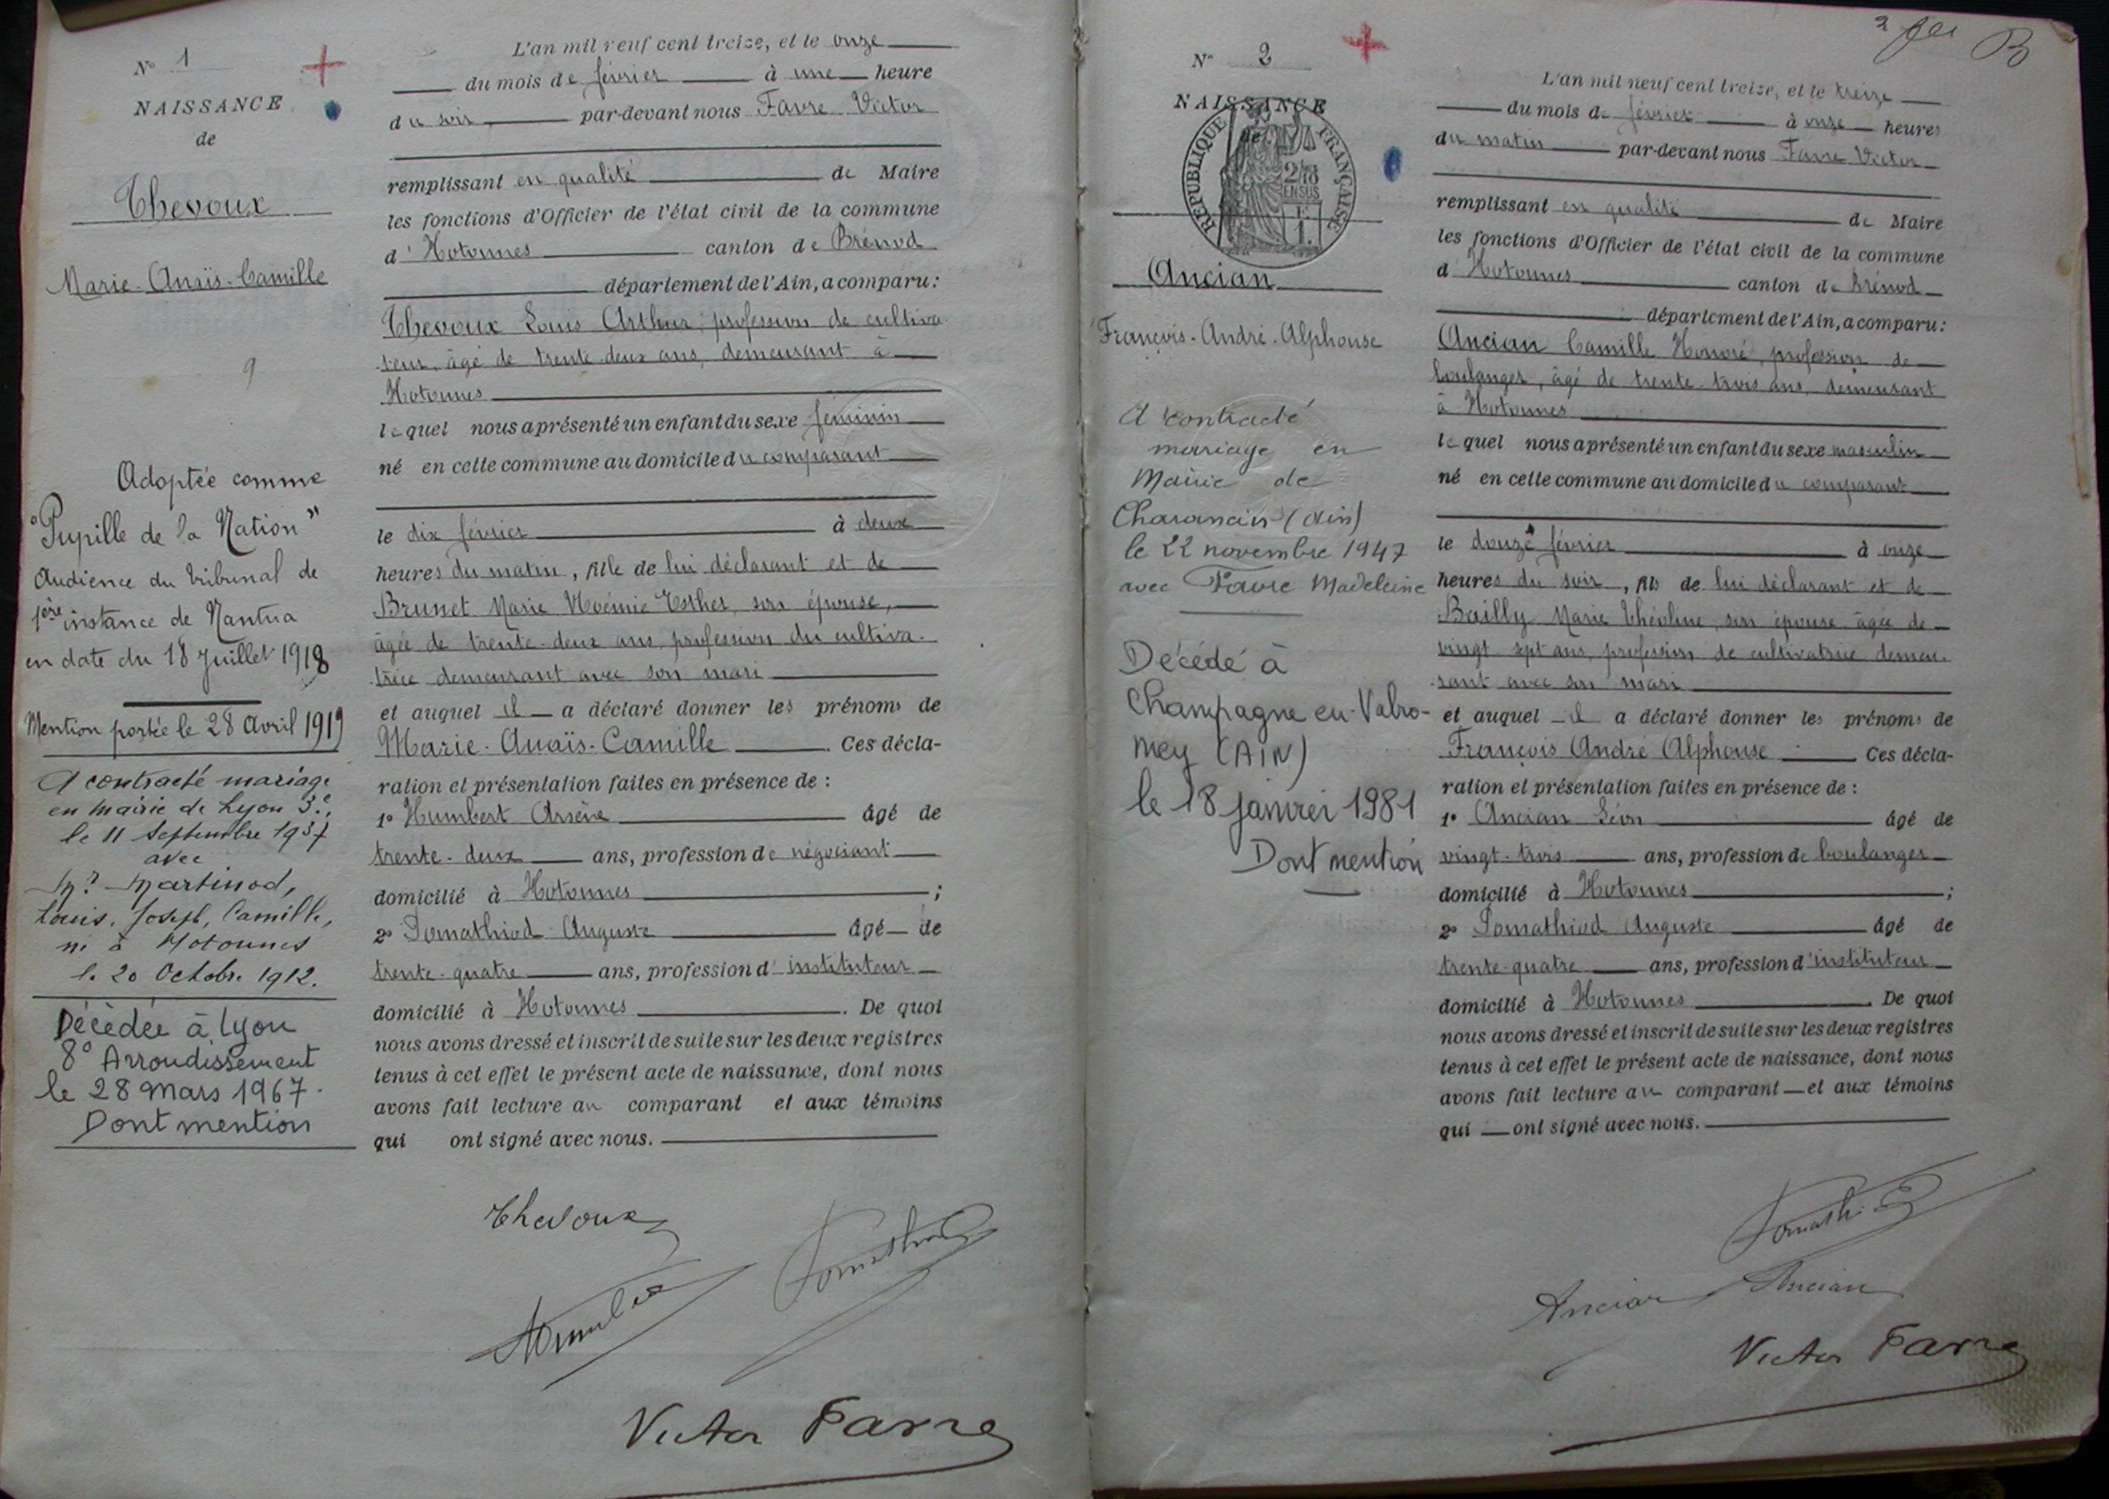 N° 1
NAISSANCE
de
Thevoux
Marie-Anaïs-Camille
9
Adoptée comme
"Pupille de la Nation"
Audience du tribunal de
1ère instance de Nantua
en date du 18 Juillet 1918
Mention portée le 28 Avril 1919
A contracté mariage
en mairie de Lyon 3e,
le 11 Septembre 1937
avec
Mr Martinod,
Louis, Joseph, Camille,
né à Hotonnes
le 20 Octobre 1912.
Décédée à Lyon
8° Arrondissement
le 28 Mars 1967.
Dont mention
L'an mil neuf cent treize, et le onze
du mois de février à une heure
du soir par-devant nous Favre Victor
remplissant en qualité de Maire
les fonctions d'Officier de l'état civil de la commune
d'Hotonnes canton de Brénod
département de l'Ain, a comparu:
Thevoux Louis Arthur, profession de cultiva-
teur, âgé de trente-deux ans, demeurant à
Hotonnes
lequel nous a présenté un enfant du sexe féminin
né en cette commune au domicile du comparant
le dix février à deux
heures du matin, fille de lui déclarant et de
Brunet Marie Noémie Esther, son épouse,
âgée de trente-deux ans, profession du cultiva-
trice demeurant avec son mari
et auquel il a déclaré donner les prénoms de
Marie-Anaïs-Camille. Ces décla-
ration et présentation faites en présence de :
1° Humbert Arsène âgé de
trente-deux ans, profession de négociant
domicilié à Hotonnes ;
2° Pomathiod Auguste âgé de
trente-quatre ans, profession d'instituteur
domicilié à Hotonnes. De quoi
nous avons dressé et inscrit de suite sur les deux registres
tenus à cet effet le présent acte de naissance, dont nous
avons fait lecture au comparant et aux témoins
qui ont signé avec nous.
Thevoux
Humbert
Pomathiod
Victor Favre
2 fev
B
N° 2
NAISSANCE
de
REPUBLIQUE FRANÇAISE
2/10
EN SUS
Ancian
François-André-Alphonse
A contracté
mariage en
Mairie de
Charancin (Ain)
le 22 novembre 1947
avec Favre Madeleine
Décédé à
Champagne-en-Valro-
mey (AIN)
le 18 janvier 1981
Dont mention
L'an mil neuf cent treize, et le treize
du mois de février à onze heures
du matin par-devant nous Favre Victor
remplissant en qualité de Maire
les fonctions d'Officier de l'état civil de la commune
d'Hotonnes canton de Brénod
département de l'Ain, a comparu:
Ancian Camille Honoré, profession de
boulanger, âgé de trente-trois ans, demeurant
à Hotonnes
lequel nous a présenté un enfant du sexe masculin
né en cette commune au domicile du comparant
le douze février à onze
heures du soir, fils de lui déclarant et de
Bailly Marie Théoline, son épouse âgée de
vingt-sept ans, profession de cultivatrice demeu-
rant avec son mari
et auquel il a déclaré donner les prénoms de
François André Alphonse. Ces décla-
ration et présentation faites en présence de :
1° Ancian Léon âgé de
vingt-trois ans, profession de boulanger
domicilié à Hotonnes ;
2° Pomathiod Auguste âgé de
trente-quatre ans, profession d'instituteur
domicilié à Hotonnes. De quoi
nous avons dressé et inscrit de suite sur les deux registres
tenus à cet effet le présent acte de naissance, dont nous
avons fait lecture au comparant et aux témoins
qui ont signé avec nous.
Pomathiod
Ancian Ancian
Victor Favre